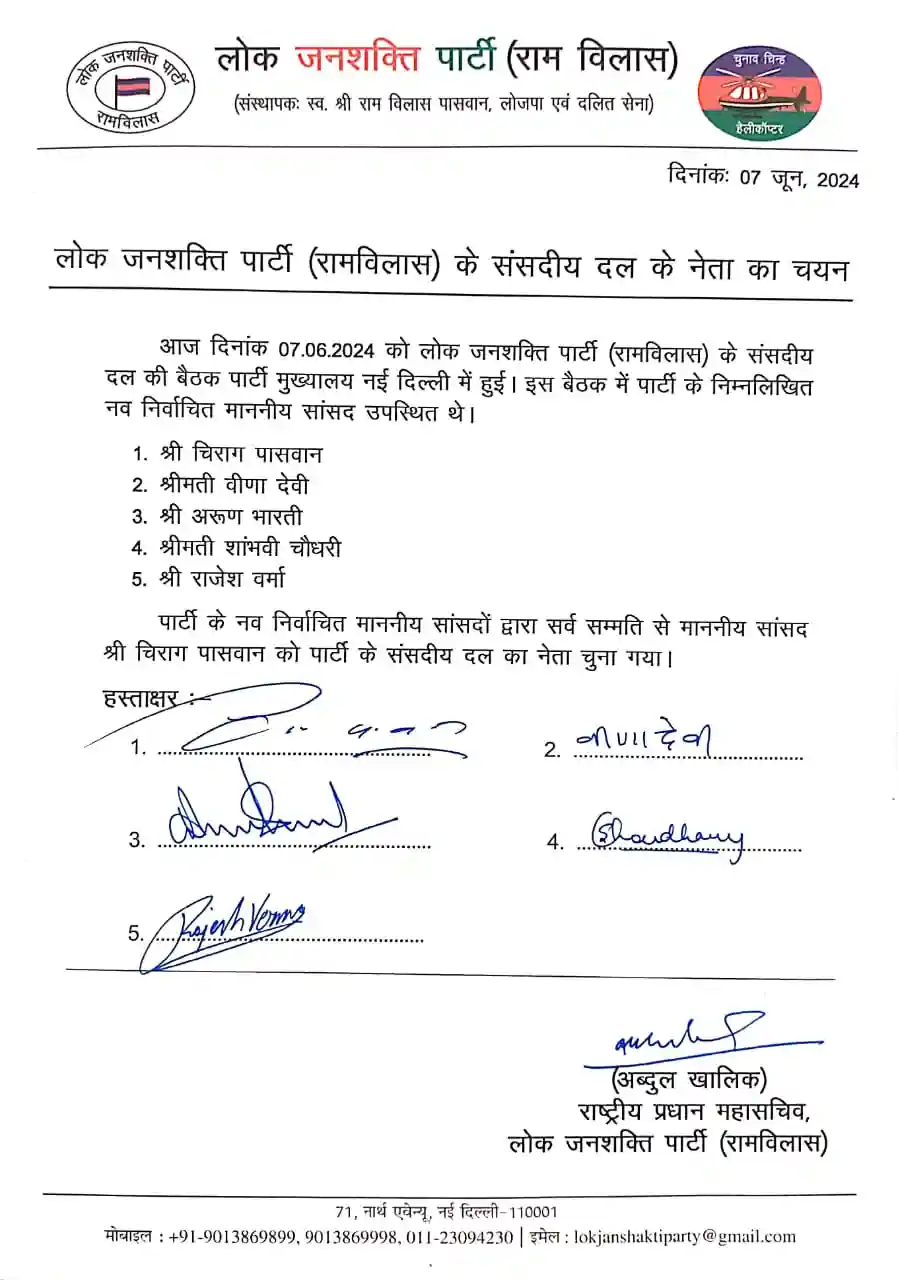 लोक जनशक्ति पार्टी
रामविलास
लोक जनशक्ति पार्टी (राम विलास)
(संस्थापकः स्व. श्री राम विलास पासवान, लोजपा एवं दलित सेना)
चुनाव चिन्ह
हैलीकॉप्टर
दिनांकः 07 जून, 2024
लोक जनशक्ति पार्टी (रामविलास) के संसदीय दल के नेता का चयन
आज दिनांक 07.06.2024 को लोक जनशक्ति पार्टी (रामविलास) के संसदीय
दल की बैठक पार्टी मुख्यालय नई दिल्ली में हुई। इस बैठक में पार्टी के निम्नलिखित
नव निर्वाचित माननीय सांसद उपस्थित थे।
1. श्री चिराग पासवान
2. श्रीमती वीणा देवी
3. श्री अरूण भारती
4. श्रीमती शांभवी चौधरी
5. श्री राजेश वर्मा
पार्टी के नव निर्वाचित माननीय सांसदों द्वारा सर्व सम्मति से माननीय सांसद
श्री चिराग पासवान को पार्टी के संसदीय दल का नेता चुना गया।
हस्ताक्षर :–
1.
2. वीणा देवी
3.
4. SChaudhary
5. Rajesh Verma
(अब्दुल खालिक)
राष्ट्रीय प्रधान महासचिव,
लोक जनशक्ति पार्टी (रामविलास)
71, नार्थ एवेन्यू, नई दिल्ली-110001
मोबाइल : +91-9013869899, 9013869998, 011-23094230 | इमेल : lokjanshaktiparty@gmail.com